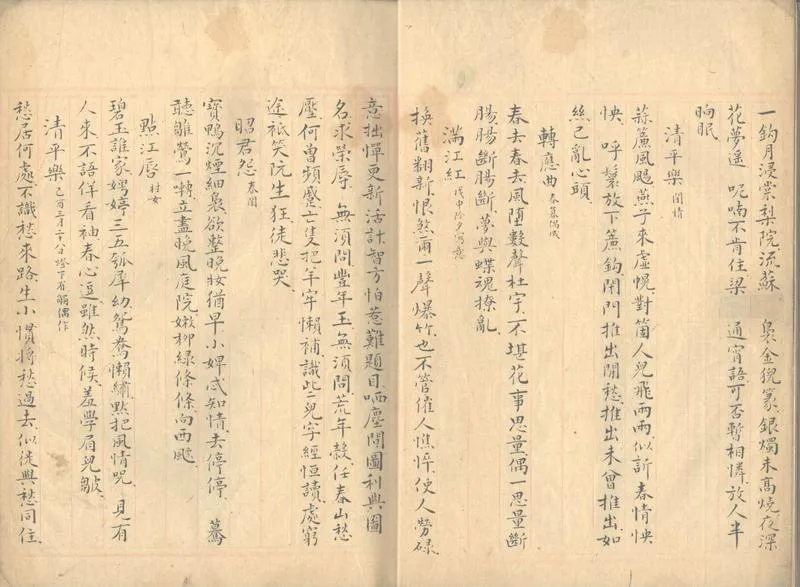 一鉤月浸棠梨院流蘇　裊金猊篆銀燭未高燒夜深
花夢遥　呢喃不肯住梁　通宵語可否暫相憐放人半
晌眠
清平樂 閨情
蒜簾風颺燕子來虛幌對箇人兒飛兩兩似訴春情怏
怏　呼鬟放下簾鉤閑門推出閒愁推出未曾推出如
絲已亂心頭
轉應曲 春暮偶成
春去春去風墮數聲杜宇不堪花事思量偶一思量斷
腸腸斷腸斷夢與蝶魂撩亂
滿江紅 戊申除夕寫意
換舊翻新恨煞兩一聲爆竹也不管催人憔悴使人勞碌
意拙憚更新活計智方怕惹難題目哂塵間圖利與圖
名求榮辱　無須問豐年玉無須問荒年穀任春山愁
壓何曾頻蹙亡隻把羊牢懶補識此二兒字經恒讀處窮
途祇笑阮生狂徒悲哭
昭君怨 春閨
寶鴨沉煙細裊欲整晚妝猶早小婢忒知情去停停　驀
聽雛鶯一囀立盡晚風庭院嫩柳綠條條向西飄
點江唇 村女
碧玉誰家娉婷三五瓠犀幼鴛鴦懶繡點把風情咒　見有
人來不語佯看袖春心逗雖然時候羞學眉兒皺
清平樂 己酉三月二十八夕燈下有觸偶作
愁居何處不識愁來路生小慣將愁過去似從與愁同住